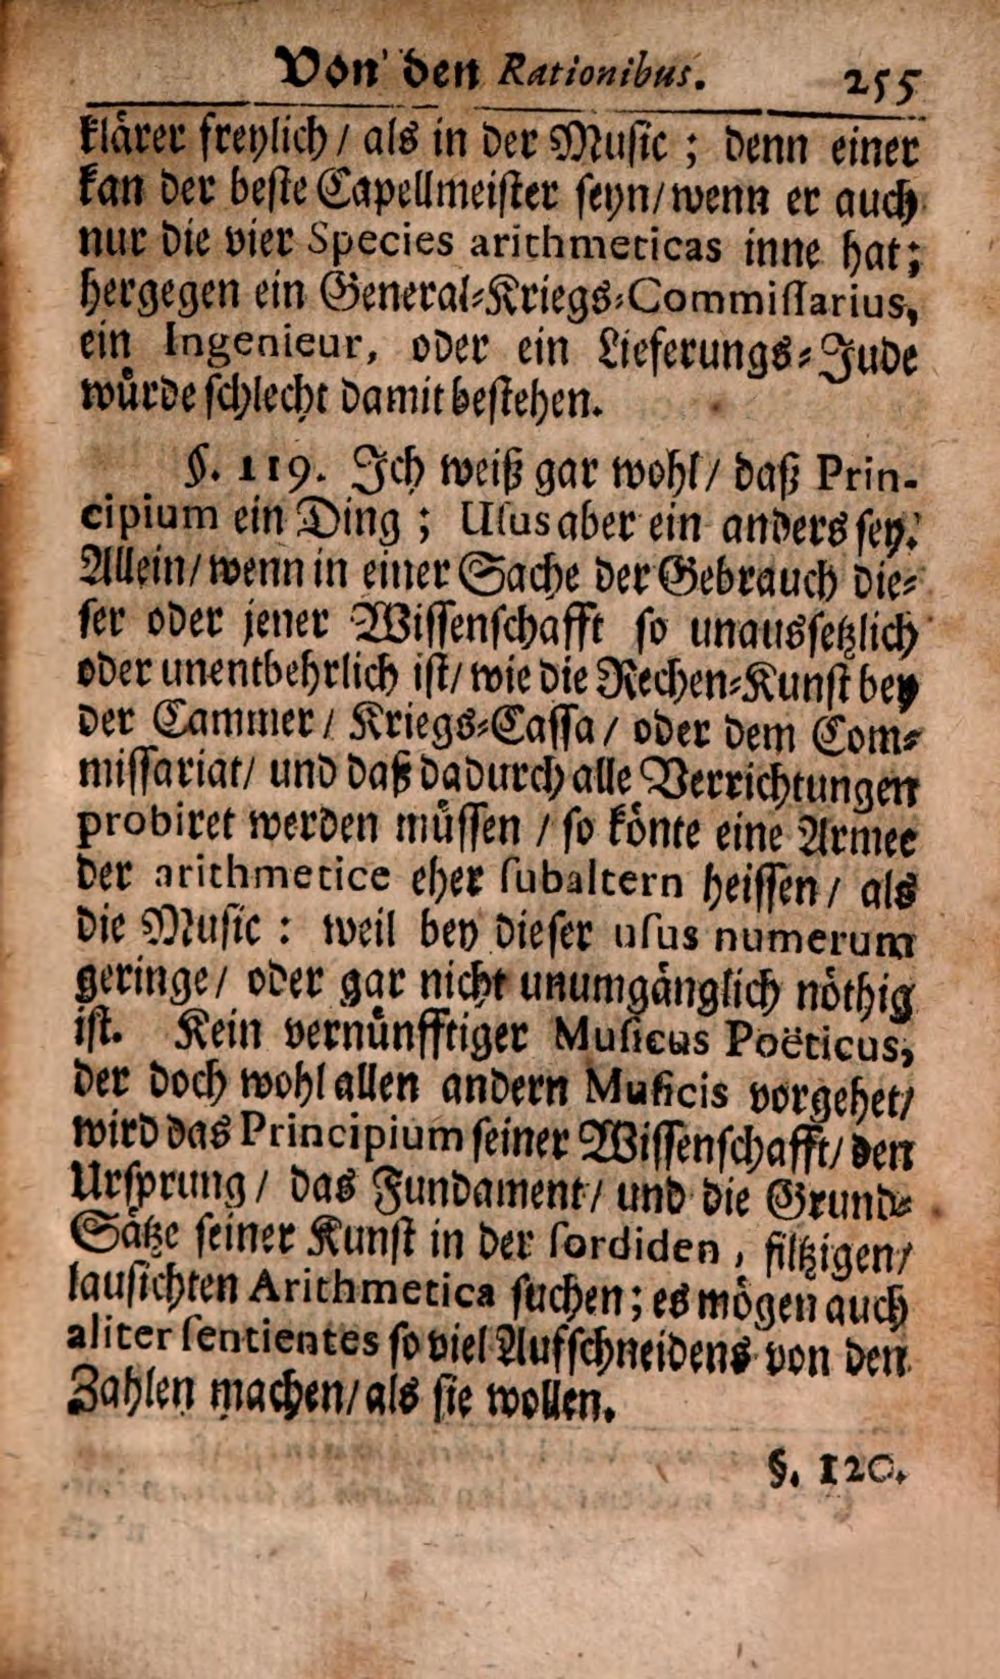 Von den Rationibus. 255
klärer freylich / als in der Music ; denn einer
kan der beste Capellmeister seyn/wenn er auch
nur die vier Species arithmeticas inne hat;
hergegen ein General-Kriegs-Commissarius,
ein Ingenieur, oder ein Lieferungs-Jude
würde schlecht damit bestehen.
§. 119. Ich weiß gar wohl/ daß Prin-
cipium ein Ding ; Usus aber ein anders sey.
Allein/wenn in einer Sache der Gebrauch die-
ser oder jener Wissenschafft so unaussetzlich
oder unentbehrlich ist/ wie die Rechen-Kunst bey
der Cammer / Kriegs-Cassa / oder dem Com-
missariat/ und daß dadurch alle Verrichtungen
probiret werden müssen / so könte eine Armee
der arithmetice eher subaltern heissen / als
die Music : weil bey dieser usus numerum
geringe/ oder gar nicht unumgänglich nöthig
ist. Kein vernünfftiger Musicus Poëticus,
der doch wohl allen andern Musicis vorgehet/
wird das Principium seiner Wissenschafft/ den
Ursprung / das Fundament/ und die Grund-
Sätze seiner Kunst in der sordiden , filtzigen/
lausichten Arithmetica suchen; es mögen auch
aliter sentientes so viel Aufschneidens von den
Zahlen machen/als sie wollen.
§. 120.